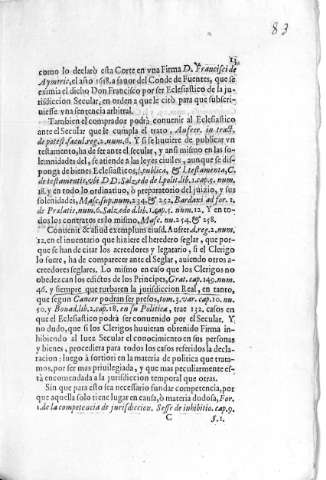 83
13
como lo declarò esta Corte en vna Firma D. Francisci de
Ayontiz, el año 1618. a fauor del Conde de Fuentes, que se
eximia el dicho Don Francisco por ser Eclesiastico de la ju-
risdiccion Secular, en orden a que le citò para que subscri-
uiesse vna sentencia arbitral.
Tambien el comprador podrà conuenir al Eclesiastico
ante el Secular que le cumpla el trato, Aufrer. in tract.
de potest. sæcul. reg. 2. num. 6. Y si se huuiere de publicar vn
testamento, ha de ser ante el secular, y ansi mismo en las so-
lemnidades del, se atiende a las leyes ciuiles, aunque se dis-
ponga de bienes Eclesiasticos, l. publica, & l. testamenta, C.
de testamentis, vbi D.D. Salzedo de l. polit. lib. 2. cap. 2. num.
18. y en todo lo ordinatiuo, ò preparatorio del juizio, y sus
solenidades, Masc. sup. num. 234. & 252. Bardaxi ad for. 2.
de Prælatis, num. 6. Salzedo d. lib. 1. cap. 1. num. 12. Y en to-
dos los contratos es lo mismo, Masc. nu. 254. & 258.
Conuenit &c aliud exemplum eiusd. Aufrer. d. reg. 2. num.
12. en el inuentario que hiziere el heredero seglar, que por-
que se han de citar los acreedores y legatario, si el Clerigo
lo fuere, ha de comparecer ante el Seglar, auiendo otros a-
creedores seglares. Lo mismo en caso que los Clerigos no
obedezcan los edictos de los Principes, Grat. cap. 149. num.
46. y siempre que turbaren la jurisdiccion Real, en tanto,
que segun Cancer podran ser presos, tom. 3. var. cap. 10. nu.
50. y Bouad. lib. 2. cap. 18. en su Politica, trae 132. casos en
que el Eclesiastico podrà ser conuenido por el Secular. Y
no dudo, que si los Clerigos huuieran obtenido Firma in-
hibiendo al Iuez Secular el conocimiento en sus personas
y bienes, procediera para todos los casos referidos la decla-
racion: luego à fortiori en la materia de politica que trata-
mos, por ser mas priuilegiada, y que mas peculiarmente es-
tà encomendada a la jurisdiccion temporal que otras.
Sin que para esto sea necessario fundar competencia, por
que aquella solo tiene lugar en causa, ò materia dudosa, For.
1. de la competencia de jurisdiccion. Sesse de inhibitio. cap. 9.
C
§. 2.